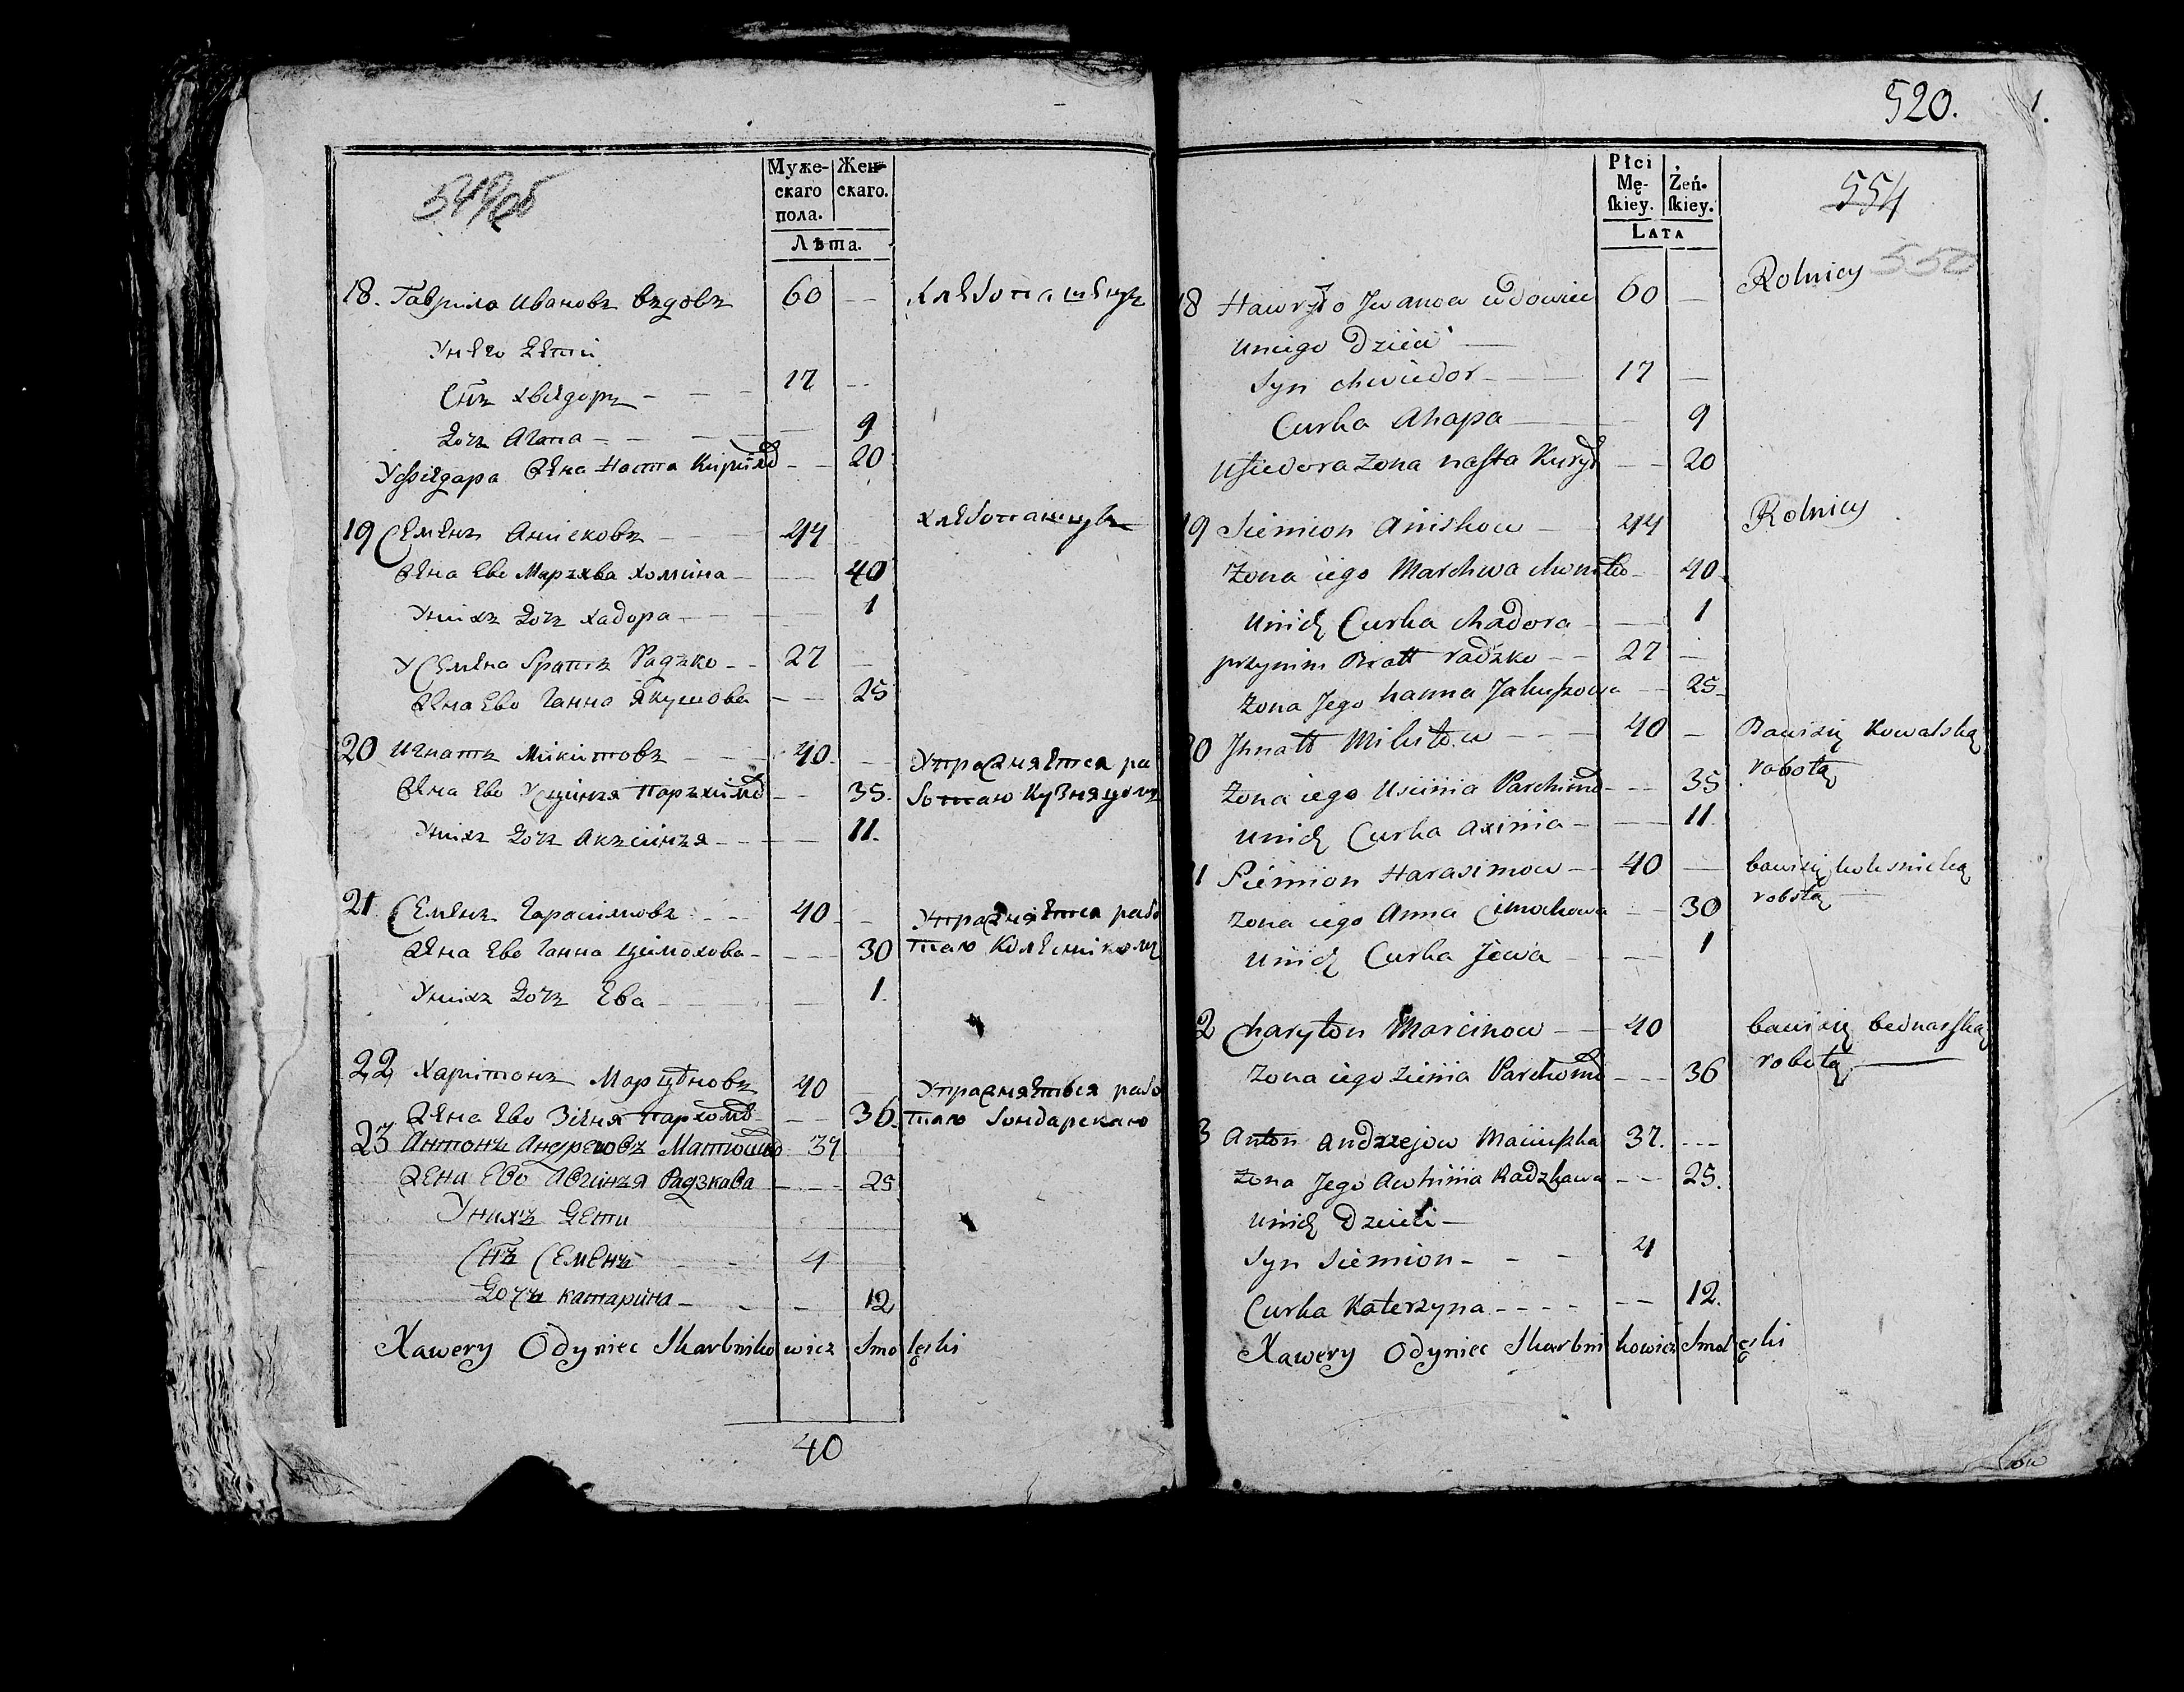 549об
Муже- Жен-
скаго скаго.
пола.
Лѣта.
18. Гаврила Ивановъ вдовъ 60 — хлебопашецъ
Унего дети
Снъ хведоръ 17 —
Дочъ Агапа 9
Усфедара жена Наста Кирилов 20
19 Семенъ Анисковъ 44 хлебопашецъ
Жена Ево Мархва хомина 40
Унихъ дочъ хадора 1
УСемена братъ Радзко 27 —
Жена Ево Ганна Якушова 25
20 Игнатъ Микитовъ 40. — Упражняетса ра
Жена Ево Усцинья Пархимов 35. ботаю Кузняцомъ
Унихъ дочъ Аксинья 11.
21 Семенъ Гарасимовъ 40 — Упражняетса рабо
Жена Ево Ганна Цимохова 30 таю Колесникомъ
Унихъ дочъ Ева 1.
22 Харитонъ Марцѣновъ 40 — Упражняеться рабо
Жена Ево Зиеня Пархомов 36. таю бондарскаю
23 Антонъ Андреювъ Матюшко 37
Жена Ево Авгинья Радзкава 25
Унихъ дети
Снъ Семенъ 4
Дочъ катарина 12
Xawery Odyniec Skarbnikowicz Smolęski
40
520. 1.
Płci
Mę- Żeń-
ſkiey. ſkiey.
LATA
554
550
18 Hawryło Jwanow wdowiec 60 — Rolnicy
uniego Dzieci
Syn chwiedor 17 —
Curka Ahapa 9
Usiedora żona nasta Kurył 20
19 Siemion Aniskow 44 Rolnicy
żona iego Marchwa 40
unich Curka chadora 1
przynim Bratt radzko 27 —
żona Jego hanna Jakuszowa 25
20 Jhnatt Mikitow 40 — Bawisię Kowalską
żona iego Uścinia Parchimo 35 robotą
unich Curka axinia 11
21 Siemion Harasimow 40 — bawisię kolesnicką
żona iego Anna Cimochowa 30 robotą
unich Curka Jewa 1
22 Charyton Marcinow 40 bawisię bednarſką
żona iego zienia Parchomo 36 robotą
23 Anton Andrzejow Maciuszka 37.
żona Jego Awhinia Radzkawa 25.
unich Dzieci
Syn Siemion 4
Curka Katerzyna 12.
Xawery Odyniec Skarbnikowicz Smolęski